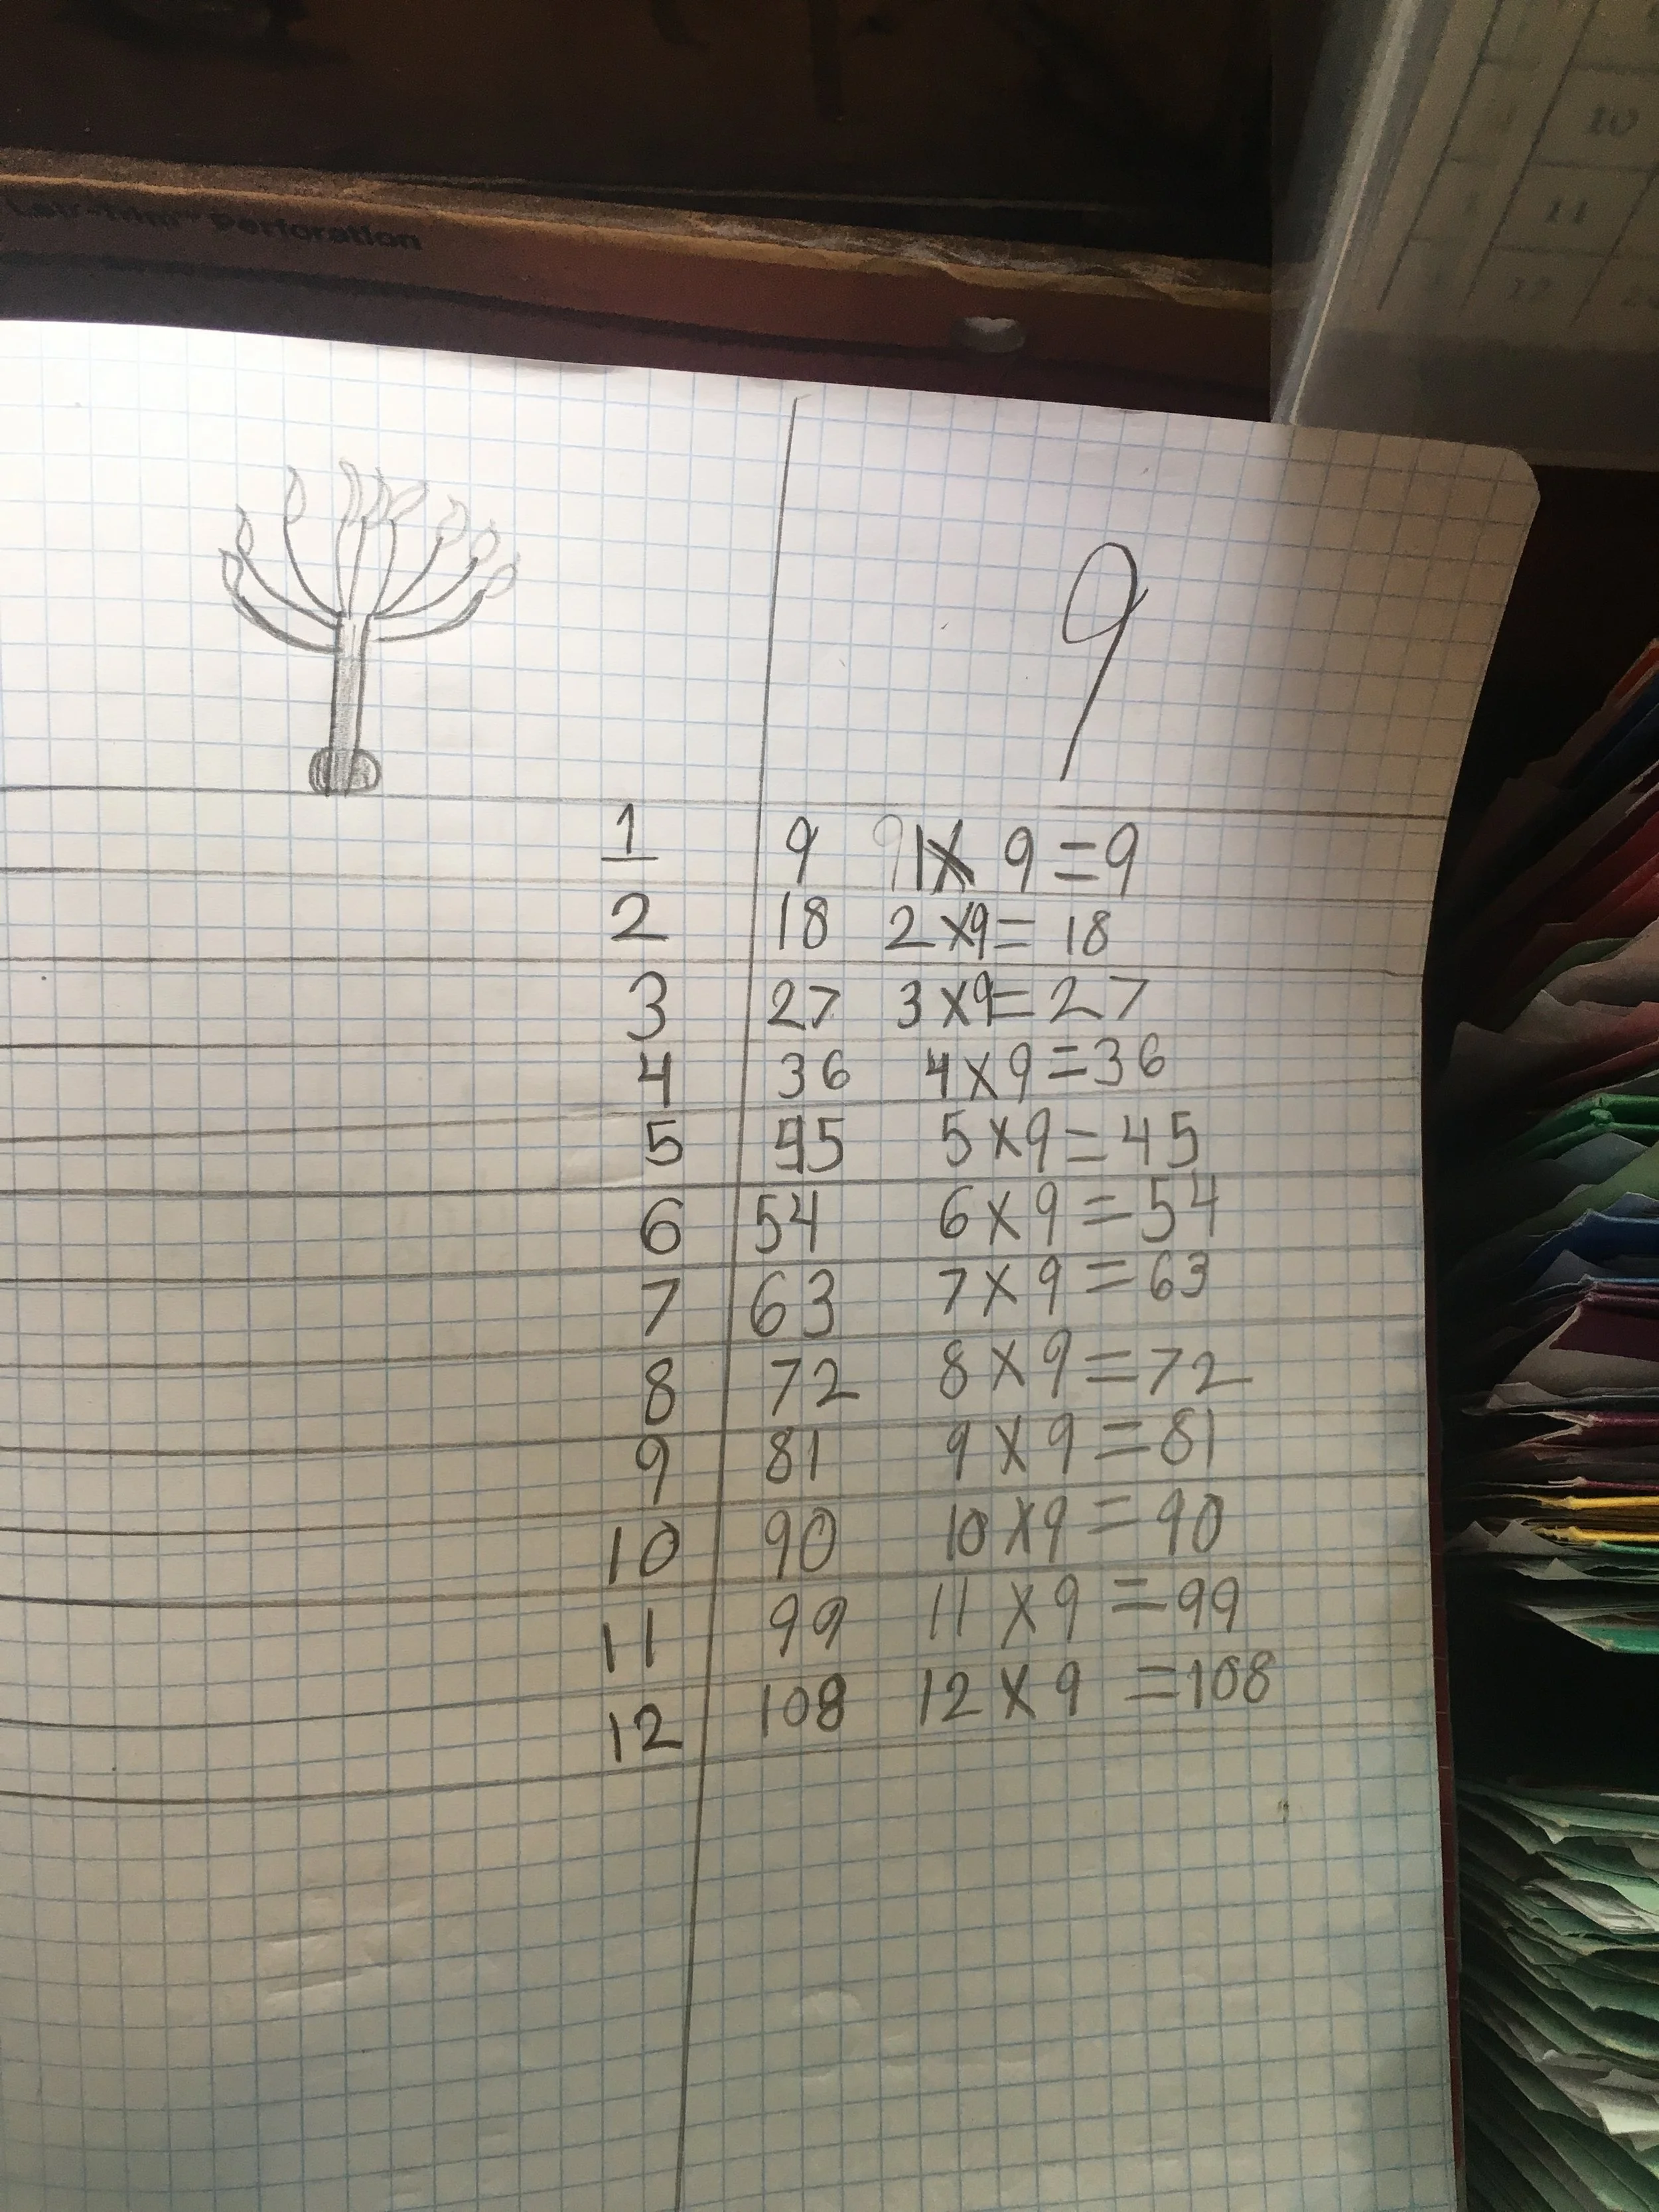 Perforation
10
11
12
9
1 9 1 X 9 = 9
2 18 2 X 9 = 18
3 27 3 X 9 = 27
4 36 4 X 9 = 36
5 45 5 X 9 = 45
6 54 6 X 9 = 54
7 63 7 X 9 = 63
8 72 8 X 9 = 72
9 81 9 X 9 = 81
10 90 10 X 9 = 90
11 99 11 X 9 = 99
12 108 12 X 9 = 108